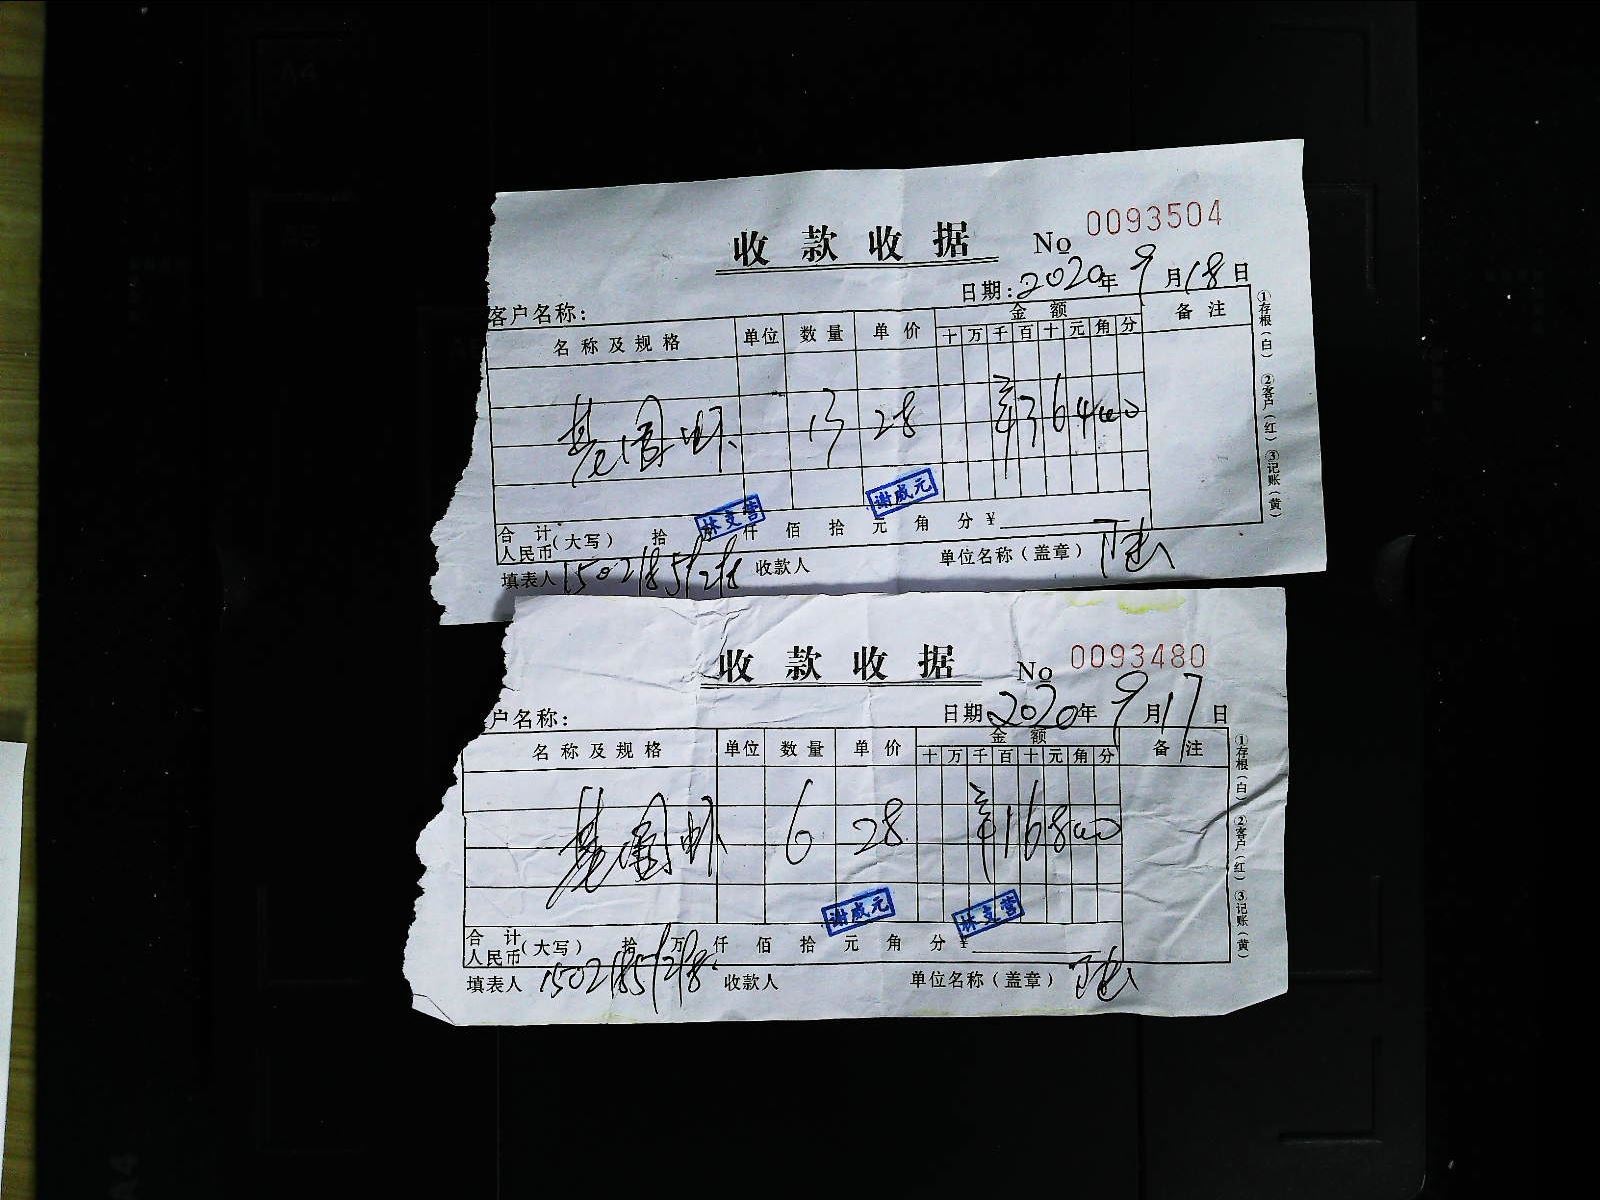 收款收据 No 0093504
日期: 2020年 9月18日
客户名称:
名称及规格 单位 数量 单价 金额 备注
十 万 千 百 十 元 角 分
基围虾 13 28 ¥36400
谢威元
林支营
合计人民币(大写) 拾 仟 佰 拾 元 角 分 ¥
填表人 15021851218 收款人 单位名称(盖章)
①存根(白) ②客户(红) ③记账(黄)
收款收据 No 0093480
日期 2020年 9月17日
户名称:
名称及规格 单位 数量 单价 金额 备注
十 万 千 百 十 元 角 分
基围虾 6 28 ¥16800
谢威元 林支营
合计人民币(大写) 拾 万 仟 佰 拾 元 角 分 ¥
填表人 15021851218 收款人 单位名称(盖章)
①存根(白) ②客户(红) ③记账(黄)
A4
A5
A4